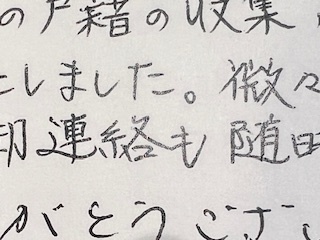 の戸籍の収集
しました。微々
連絡も随時
がとうござ